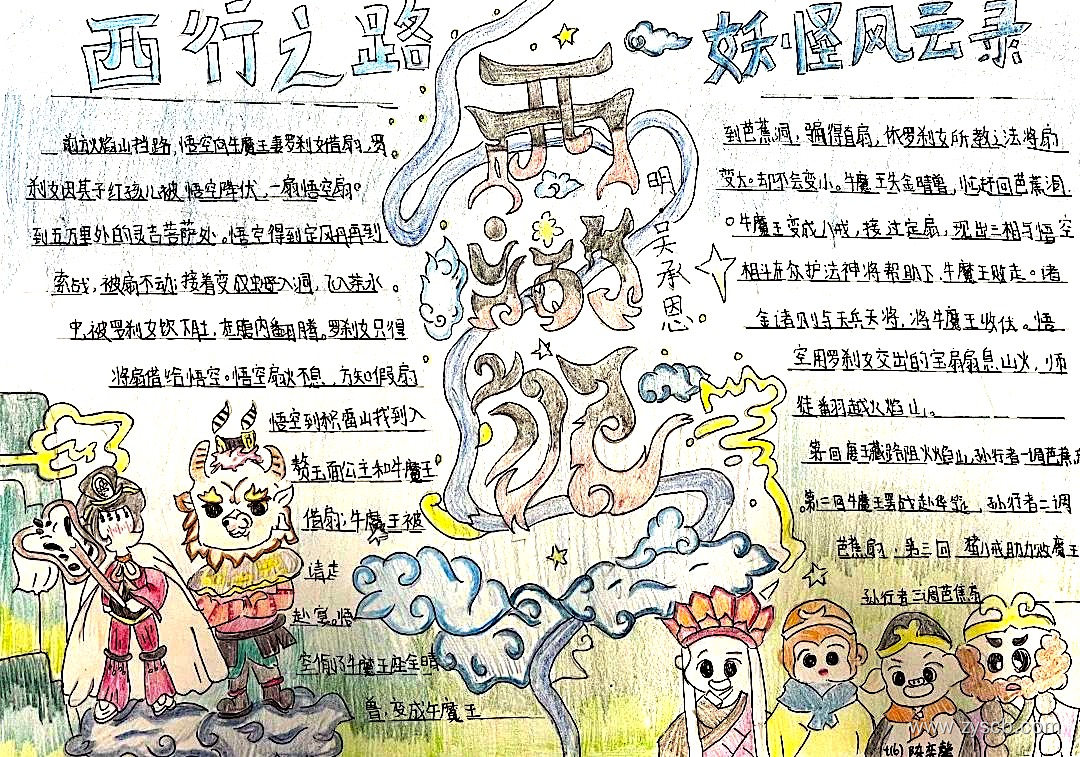 西行之路
前方火焰山挡路,悟空向牛魔王妻罗刹女借扇,罗
刹女因其子红孩儿被悟空降伏,一扇悟空扇。
到五万里外的灵吉菩萨处。悟空得到定风丹再到
索战,被扇不动;接着变成虫子入洞,飞入茶水。
中,被罗刹女饮下肚,在腹内翻腾。罗刹女只得
将扇借给悟空。悟空扇火不息,方知假扇
悟空到积雷山找到入
赘玉面公主和牛魔王
借扇;牛魔王被
请走
赴宴。悟
空偷了牛魔王座金睛
兽,变成牛魔王
西
游
记
明
吴承恩
妖怪风云录
到芭蕉洞,骗得真扇,依罗刹女所教之法将扇
变大。却不会变小。牛魔王失金睛兽,忙赶回芭蕉洞
。牛魔王变成八戒,接过定扇,现出三相与悟空
相斗在众护法神将帮助下,牛魔王败走。诸
金诸则与玉兵天将,将牛魔王收伏。悟
空用罗刹女交出的宝扇扇息山火,师
徒翻越火焰山。
第一回魔王藏路阻火焰山,孙行者一调芭蕉
。第二回牛魔王罢战赴华筵,孙行者二调
芭蕉扇。第三回 猪八戒助力败魔王
孙行者三调芭蕉扇
www.zyscb.com